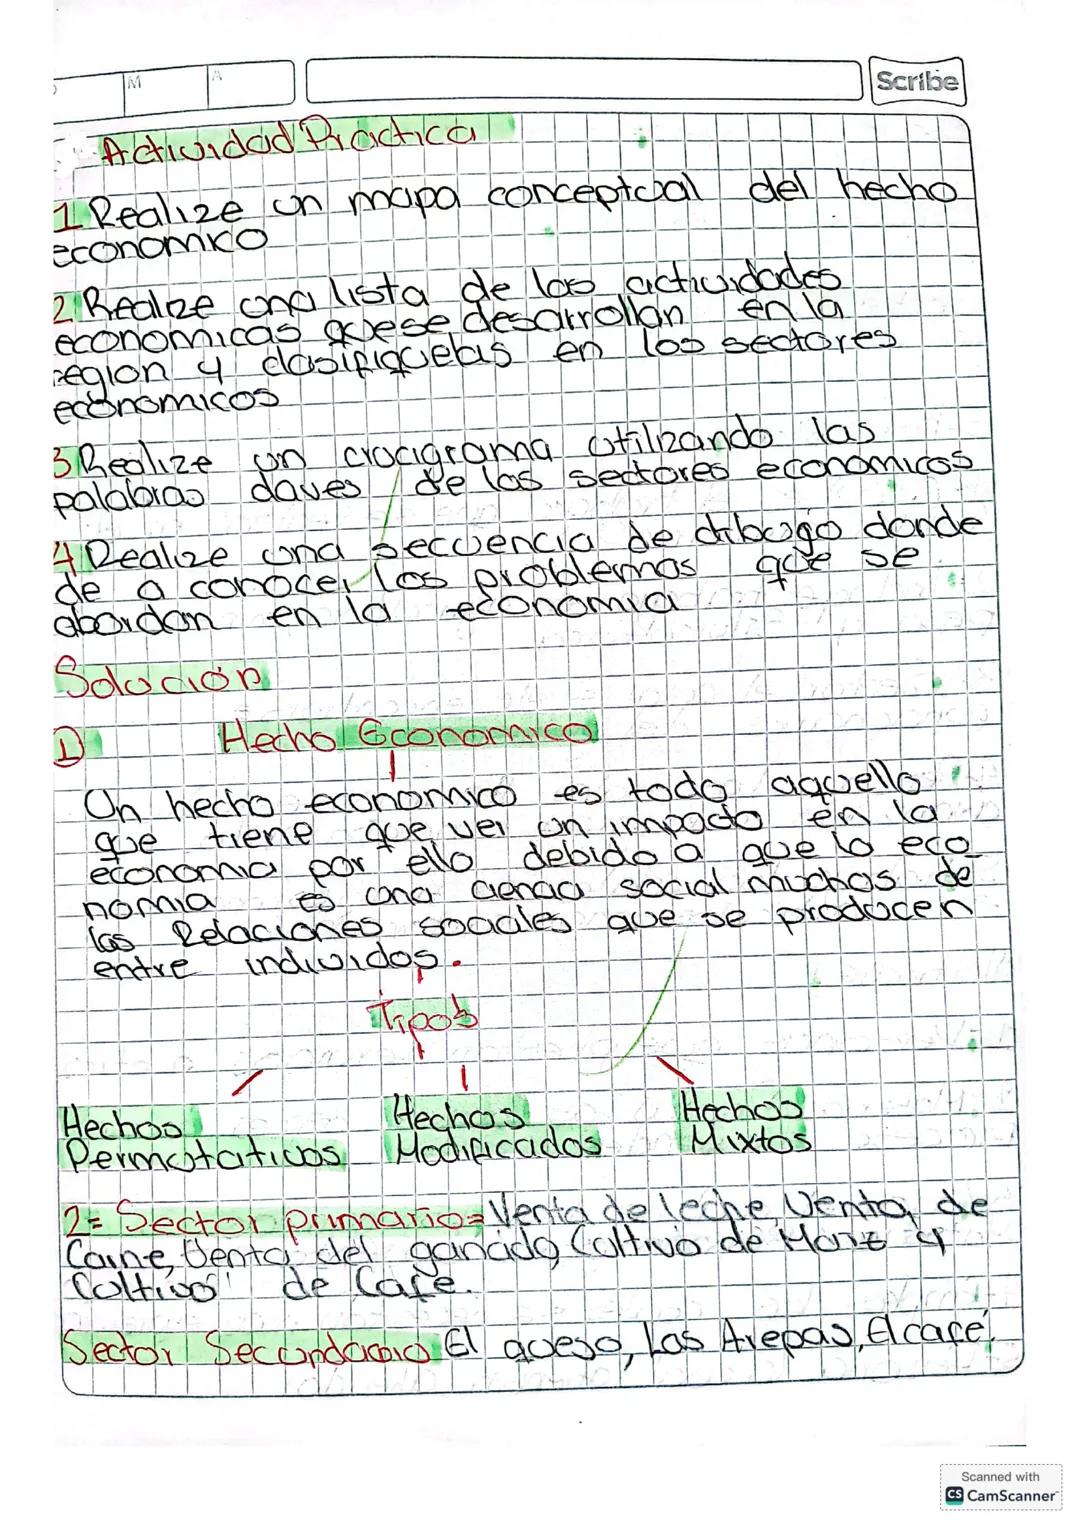 M
A
Scribe
Actividad Practica
1 Realize un mapa conceptual del hecho
economico
2 Realize una lista de las actividades
economicas que se desarrollan en la
region y clasifiquelas en los sectores
economicos
3 Realize un crucigrama utilizando las
palabras claves de los sectores economicos
4 Realize una secuencia de dibugo donde
de a conocer los problemas que se
abordan en la economia
Solución
1 Hecho Economico
Un hecho economico es todo aquello
que tiene que ver un impacto en la
economia por ello debido a que la eco
nomia es una ciencia social muchos de
las Relaciones sociales que se producen
entre individos.
Tipos
Hechos Permutativos
Hechos Modificados
Hechos Mixtos
2= Sector primario= Venta de leche Venta de
Carne, Venta del ganado, Cultivo de Maiz y
Cultivos de Cafe.
Sector Secundario El queso, Las Arepas, El cafe.
Scanned with
CS CamScanner